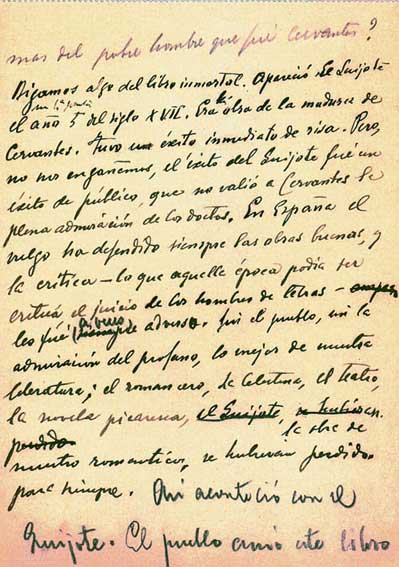 mas del pobre hombre que fué Cervantes?
Digamos algo del libro inmortal. Apareció El Quijote
el año 5 del siglo XVII. Era obra de la madurez de
Cervantes. Tuvo un éxito inmediato de risa. Pero,
no nos engañemos, el éxito del Quijote fué un
éxito de público, que no valió a Cervantes la
plena admiración de los doctos. En España el
vulgo ha defendido siempre las obras buenas, y
la crítica – lo que aquella época podia ser
critica el juicio de los hombres de letras –
les fué a veces adverso. Sin el pueblo, sin la
admiración del profano, lo mejor de nuestra
literatura; el romancero, la Celestina, el teatro,
la novela picaresca, el Quijote, se hubieran
perdido la obra de
nuestros romanticos, se hubieran perdido
para siempre. Asi aconteció con el
Quijote. El pueblo amó este libro